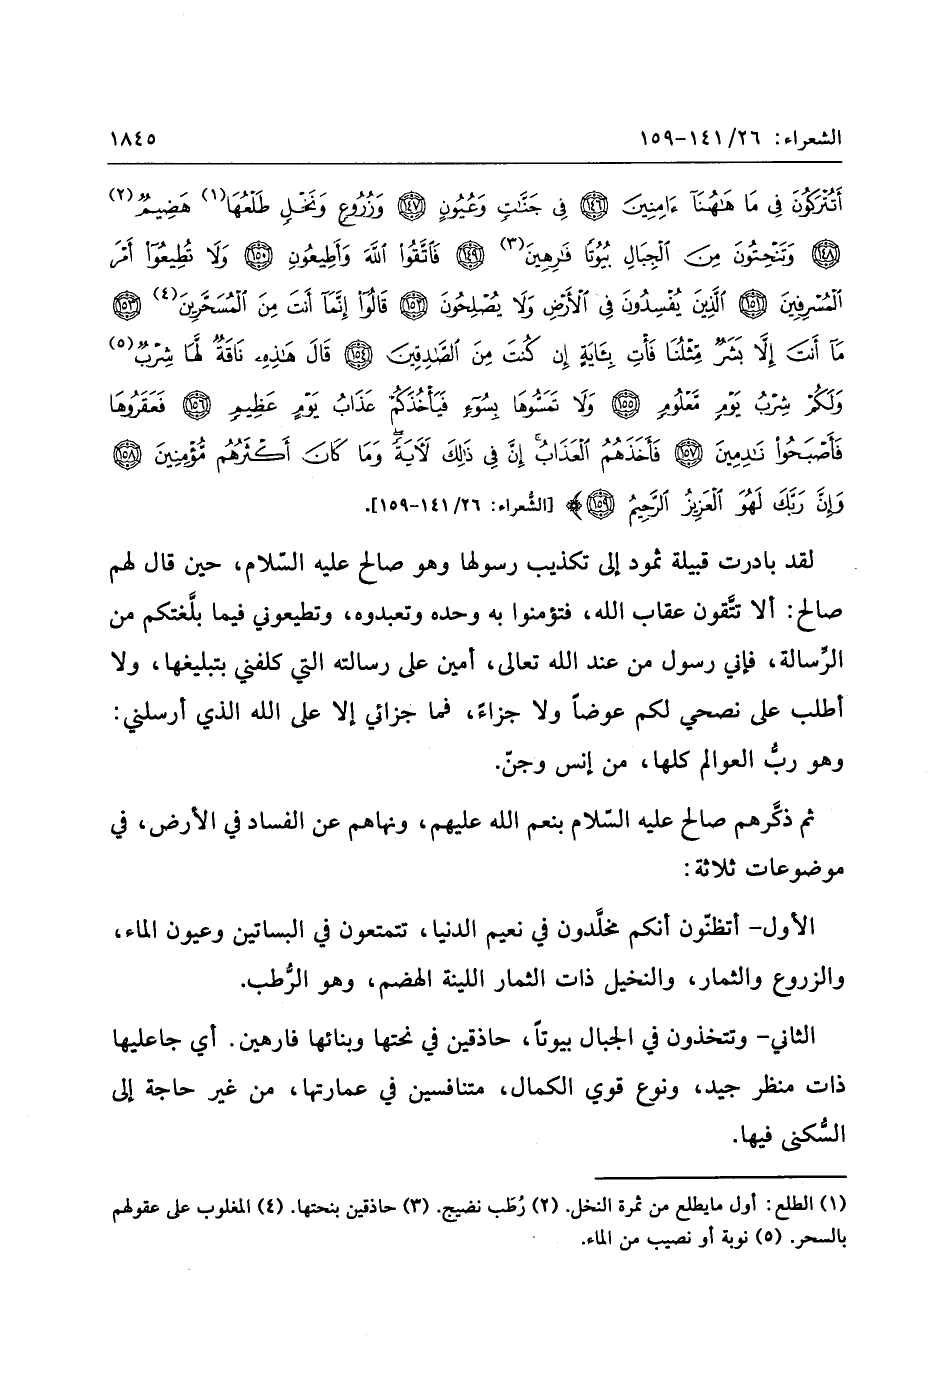 الشعراء: ٢٦/ ١٤١-١٥٩ ١٨٤٥
أَتُتْرَكُونَ فِى مَا هَٰهُنَآ ءَامِنِينَ ١٤٦ فِى جَنَّٰتٍ وَعُيُونٍ ١٤٧ وَزُرُوعٍ وَنَخْلٍ طَلْعُهَا(١) هَضِيمٌ(٢)
١٤٨ وَتَنْحِتُونَ مِنَ ٱلْجِبَالِ بُيُوتًا فَٰرِهِينَ(٣) ١٤٩ فَٱتَّقُوا۟ ٱللَّهَ وَأَطِيعُونِ ١٥٠ وَلَا تُطِيعُوٓا۟ أَمْرَ
ٱلْمُسْرِفِينَ ١٥١ ٱلَّذِينَ يُفْسِدُونَ فِى ٱلْأَرْضِ وَلَا يُصْلِحُونَ ١٥٢ قَالُوٓا۟ إِنَّمَآ أَنتَ مِنَ ٱلْمُسَحَّرِينَ(٤) ١٥٣
مَآ أَنتَ إِلَّا بَشَرٌ مِّثْلُنَا فَأْتِ بِـَٔايَةٍ إِن كُنتَ مِنَ ٱلصَّٰدِقِينَ ١٥٤ قَالَ هَٰذِهِۦ نَاقَةٌ لَّهَا شِرْبٌ(٥)
وَلَكُمْ شِرْبُ يَوْمٍ مَّعْلُومٍ ١٥٥ وَلَا تَمَسُّوهَا بِسُوٓءٍ فَيَأْخُذَكُمْ عَذَابُ يَوْمٍ عَظِيمٍ ١٥٦ فَعَقَرُوهَا
فَأَصْبَحُوا۟ نَٰدِمِينَ ١٥٧ فَأَخَذَهُمُ ٱلْعَذَابُ ۗ إِنَّ فِى ذَٰلِكَ لَءَايَةً ۖ وَمَا كَانَ أَكْثَرُهُم مُّؤْمِنِينَ ١٥٨
وَإِنَّ رَبَّكَ لَهُوَ ٱلْعَزِيزُ ٱلرَّحِيمُ ١٥٩﴾ [الشُّعراء: ٢٦/ ١٤١-١٥٩].
لقد بادرت قبيلة ثمود إلى تكذيب رسولها وهو صالح عليه السّلام، حين قال لهم
صالح: ألا تتَّقون عقاب الله، فتؤمنوا به وحده وتعبدوه، وتطيعوني فيما بلَّغتكم من
الرِّسالة، فإني رسول من عند الله تعالى، أمين على رسالته التي كلفني بتبليغها، ولا
أطلب على نصحي لكم عوضاً ولا جزاءً، فما جزائي إلا على الله الذي أرسلني:
وهو ربُّ العوالم كلها، من إنس وجنّ.
ثم ذكَّرهم صالح عليه السّلام بنعم الله عليهم، ونهاهم عن الفساد في الأرض، في
موضوعات ثلاثة:
الأول- أتظنّون أنكم مخلَّدون في نعيم الدنيا، تتمتعون في البساتين وعيون الماء،
والزروع والثمار، والنخيل ذات الثمار اللينة الهضم، وهو الرُّطب.
الثاني- وتتخذون في الجبال بيوتاً، حاذقين في نحتها وبنائها فارهين. أي جاعليها
ذات منظر جيد، ونوع قوي الكمال، متنافسين في عمارتها، من غير حاجة إلى
السُّكنى فيها.
(١) الطلع: أول مايطلع من ثمرة النخل. (٢) رُطَب نضيج. (٣) حاذقين بنحتها. (٤) المغلوب على عقولهم
بالسحر. (٥) نوبة أو نصيب من الماء.